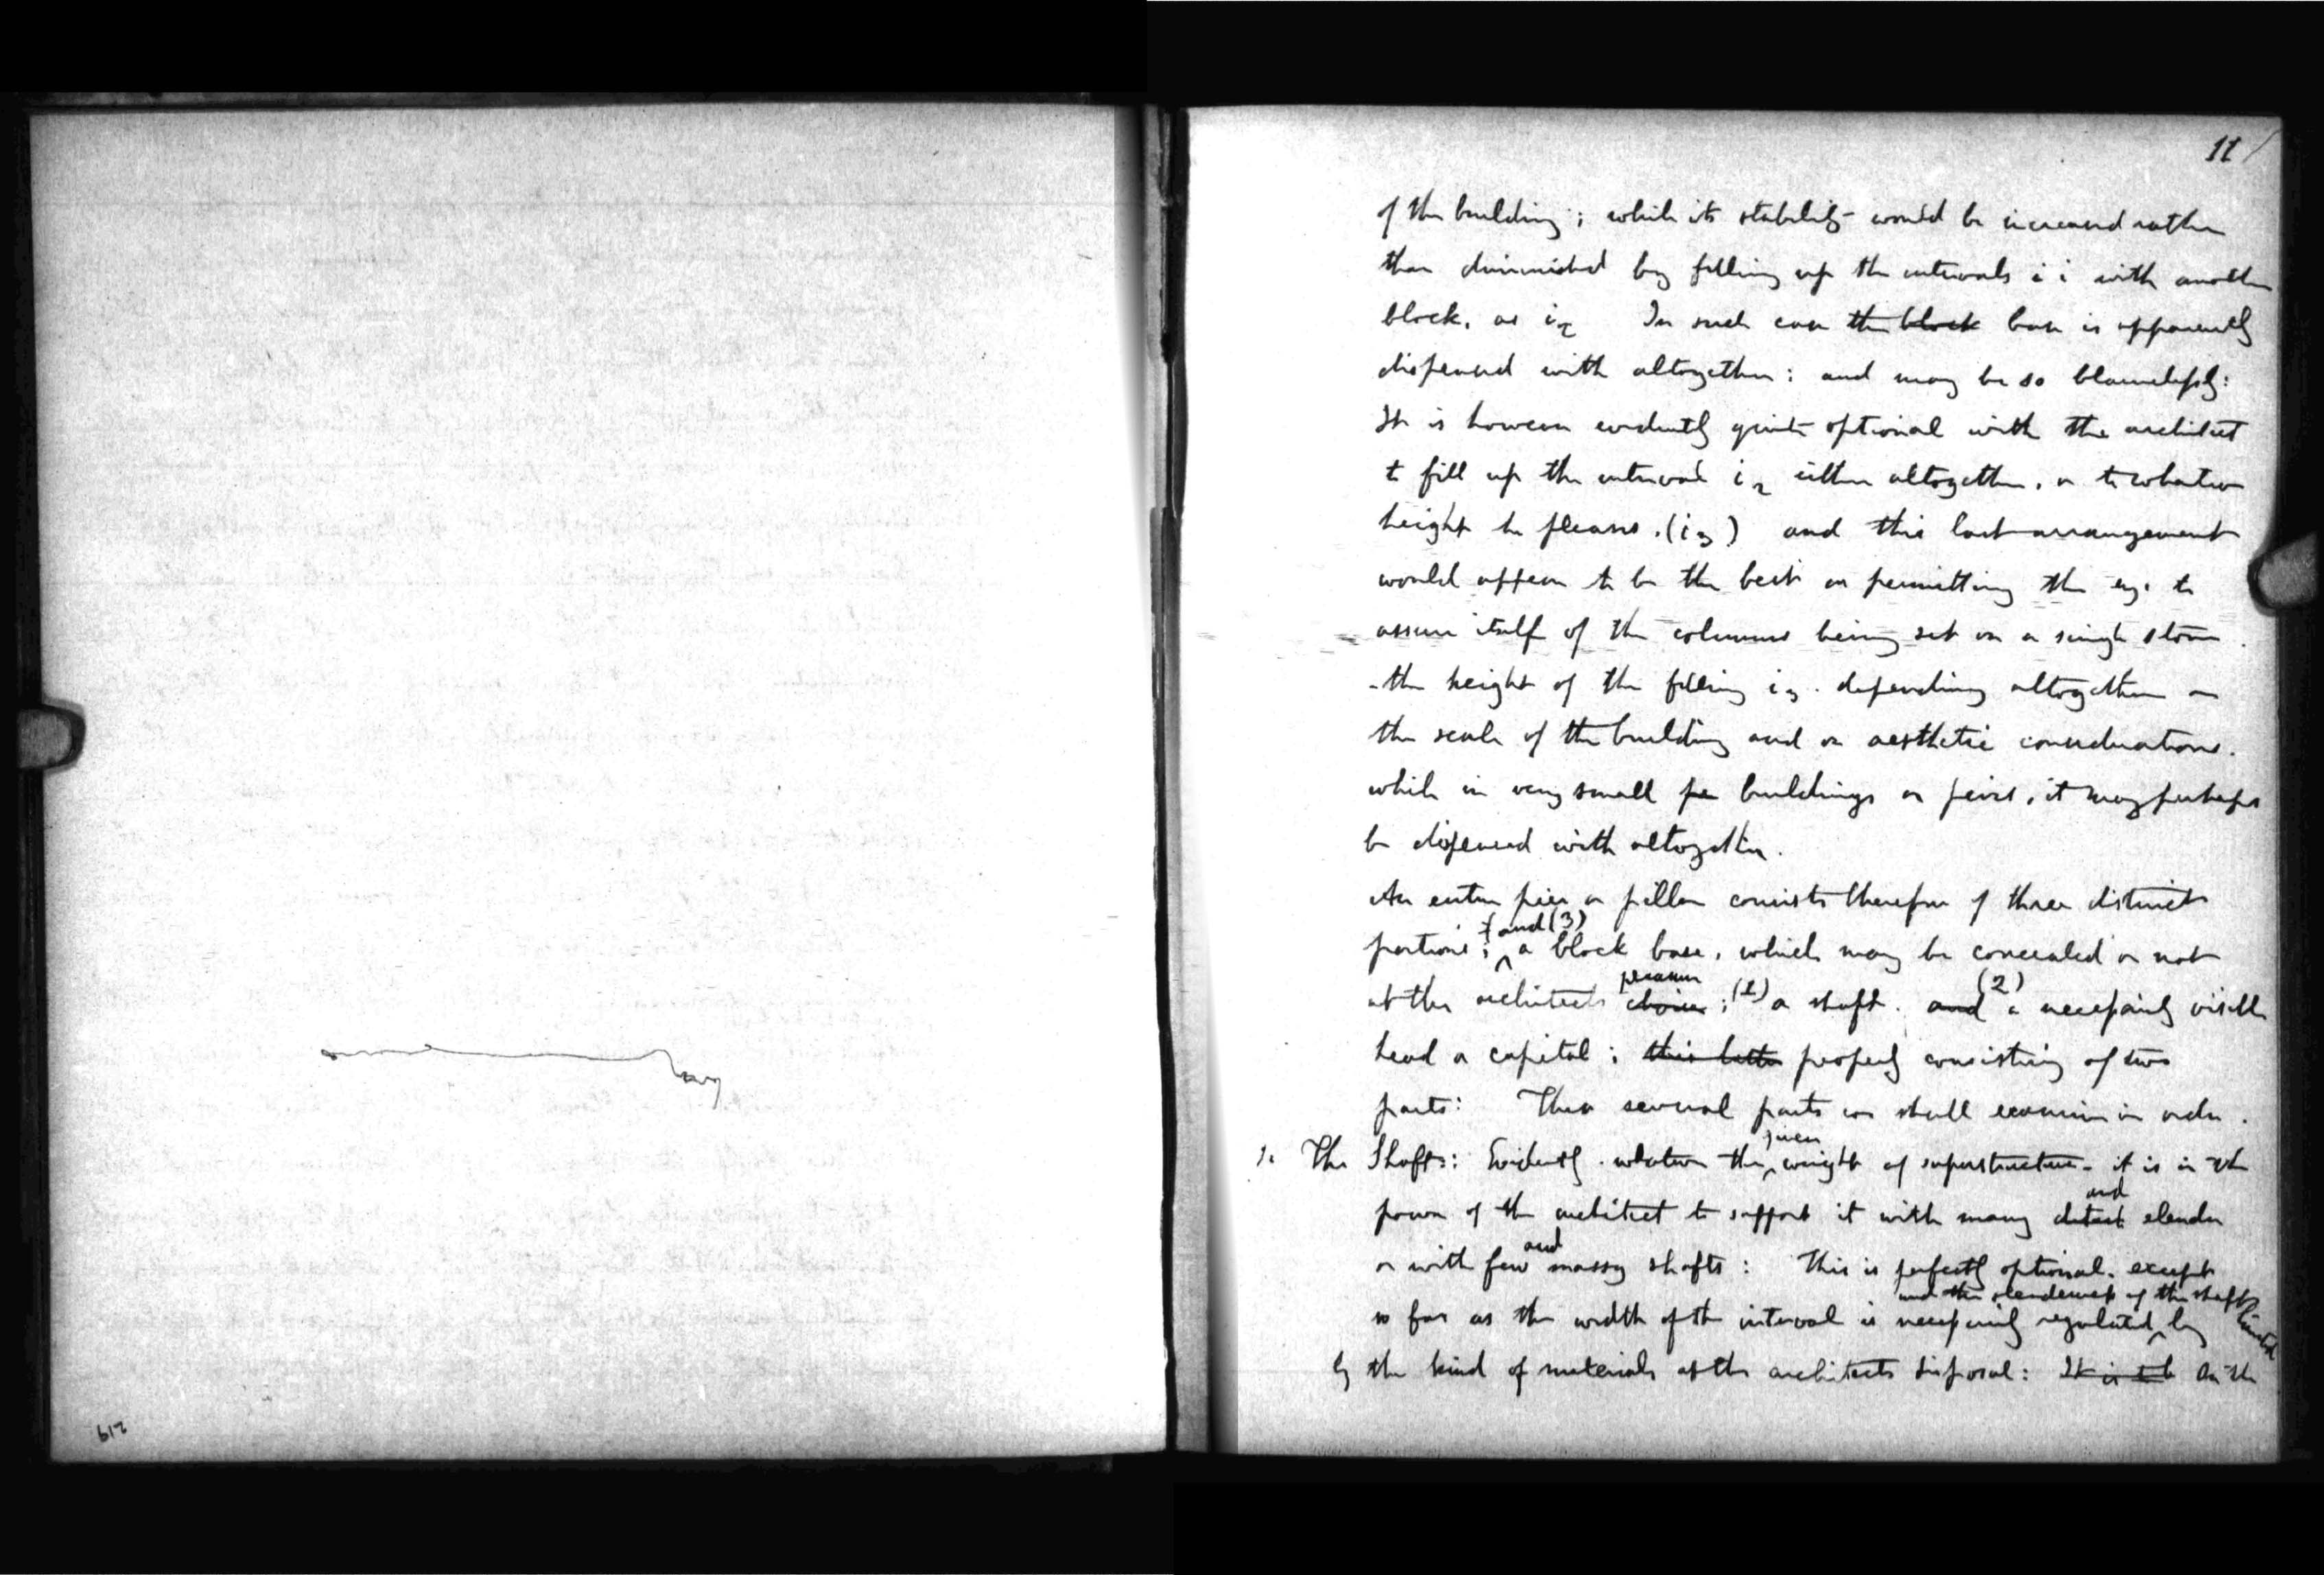 11
of the building; while its stability would be increased rather
than diminished by filling up the intervals i i with another
block, as i2 In such case the block base is apparently
dispensed with altogether: and may be so blamelessly:
It is however evidently quite optional with the architect
to fill up the interval i2 either altogether, or to whatever
height he pleases. (i3) and this last arrangement
would appear to be the best as permitting the eye to
assure itself of the columns being set on a single stone.
-the height of the filling i3. depending altogether on
the scale of the building and on aesthetic considerations.
while in very small pe buildings or piers, it may perhaps
be dispensed with altogether.
An entire pier or pillar consists therefore of three distinct
and (3)
portions; a block base, which may be concealed or not
pleasure (2)
at the architects choice; (1) a shaft. and a necessarily visible
head or capital; this latter properly consisting of two
parts: These several parts we shall examine in order.
given
1. The Shafts: Evidently. whatever the weight of superstructure- it is in the
and
power of the architect to support it with many slender
and
or with few massy shafts: This is perfectly optional. except
and the slenderness of the shaft limited
so far as the width of the interval is necessarily regulated by
by the kind of materials at the architects disposal: It is On the
612